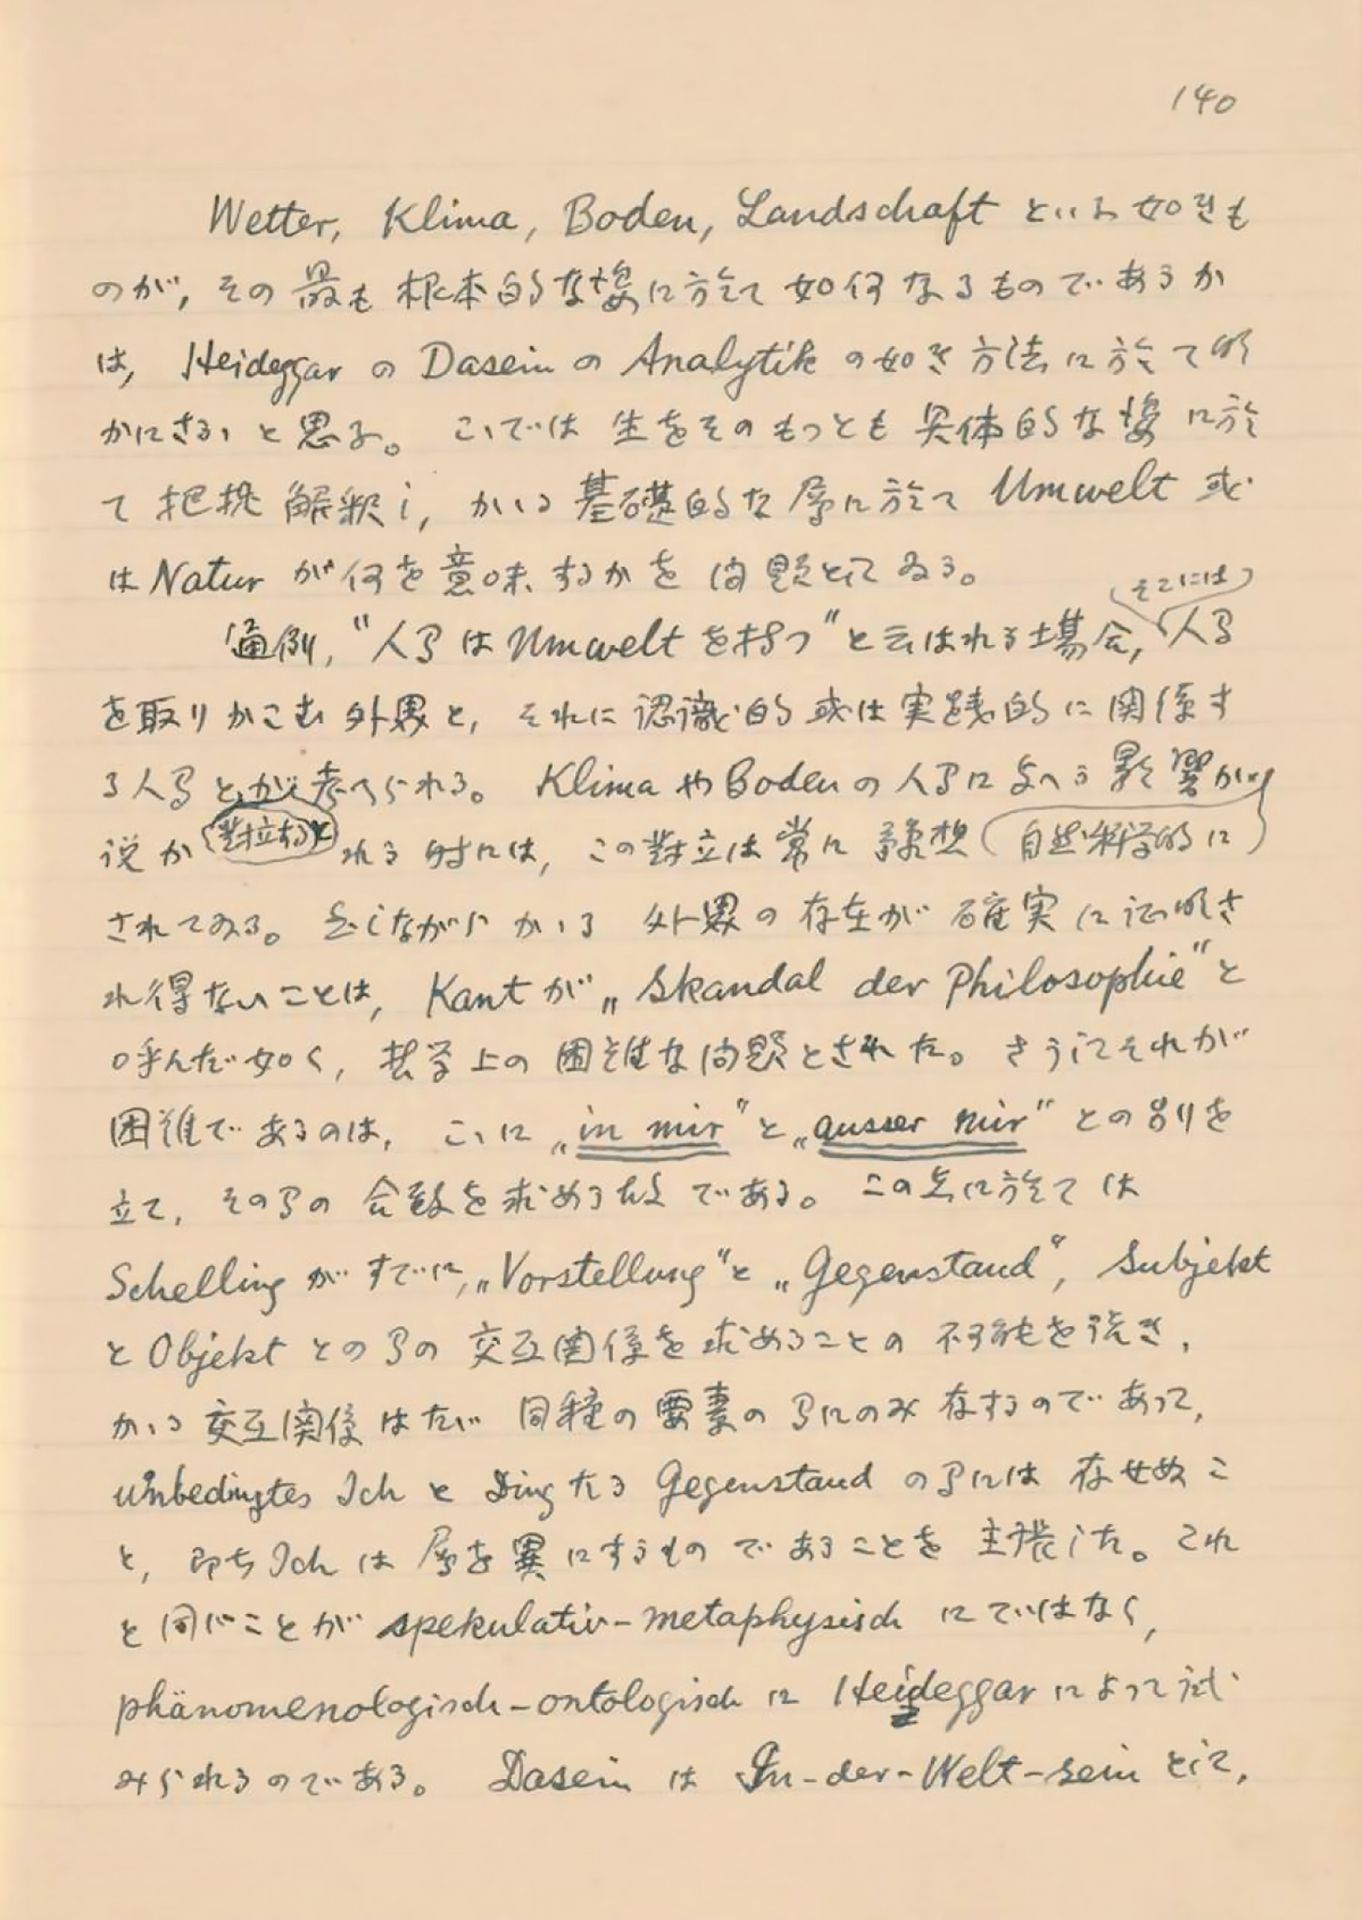 140
Wetter, Klima, Boden, Landschaft といふ如きも
のが, その最も根本的な姿に於て如何なるものであるか
は, Heideggar の Dasein の Analytik の如き方法に於て明
かにさるゝと思ふ。こゝでは生をそのもっとも具体的な姿に於
て把捉解釈し, かゝる基礎的な層に於て Umwelt 或
は Natur が何を意味するかを問題としてゐる。
そこには
通例, "人間は Umwelt を持つ" と云はれる場合, 人間
を取りかこむ外界と, それに認識的或は実践的に関係す
る人間とが考へられる。 Klima や Boden の人間に与へる影響が
対立すると
説かれる時には, この対立は常に豫想 (自然科学的に)
されてゐる。然しながらかゝる外界の存在が確実に証明さ
れ得ないことは, Kant が „Skandal der Philosophie" と
呼んだ如く, 哲学上の困難な問題とされた。さうしてそれが
困難であるのは, こゝに „in mir" と „ausser mir" との別を
立て, その間の合致を求める故である。この点に於ては
Schelling がすでに, „Vorstellung" と „Gegenstand", Subjekt
と Objekt との間の交互関係を求めることの不可能を説き,
かゝる交互関係はたゞ同種の要素の間にのみ存するのであって,
unbedingtes Ich と Ding たる Gegenstand の間には存せぬこ
と, 即ち Ich は層を異にするものであることを主張した。これ
と同じことが spekulativ-metaphysisch にではなく,
phänomenologisch-ontologisch に Heideggar によって試
みられるのである。 Dasein は In-der-Welt-sein として,